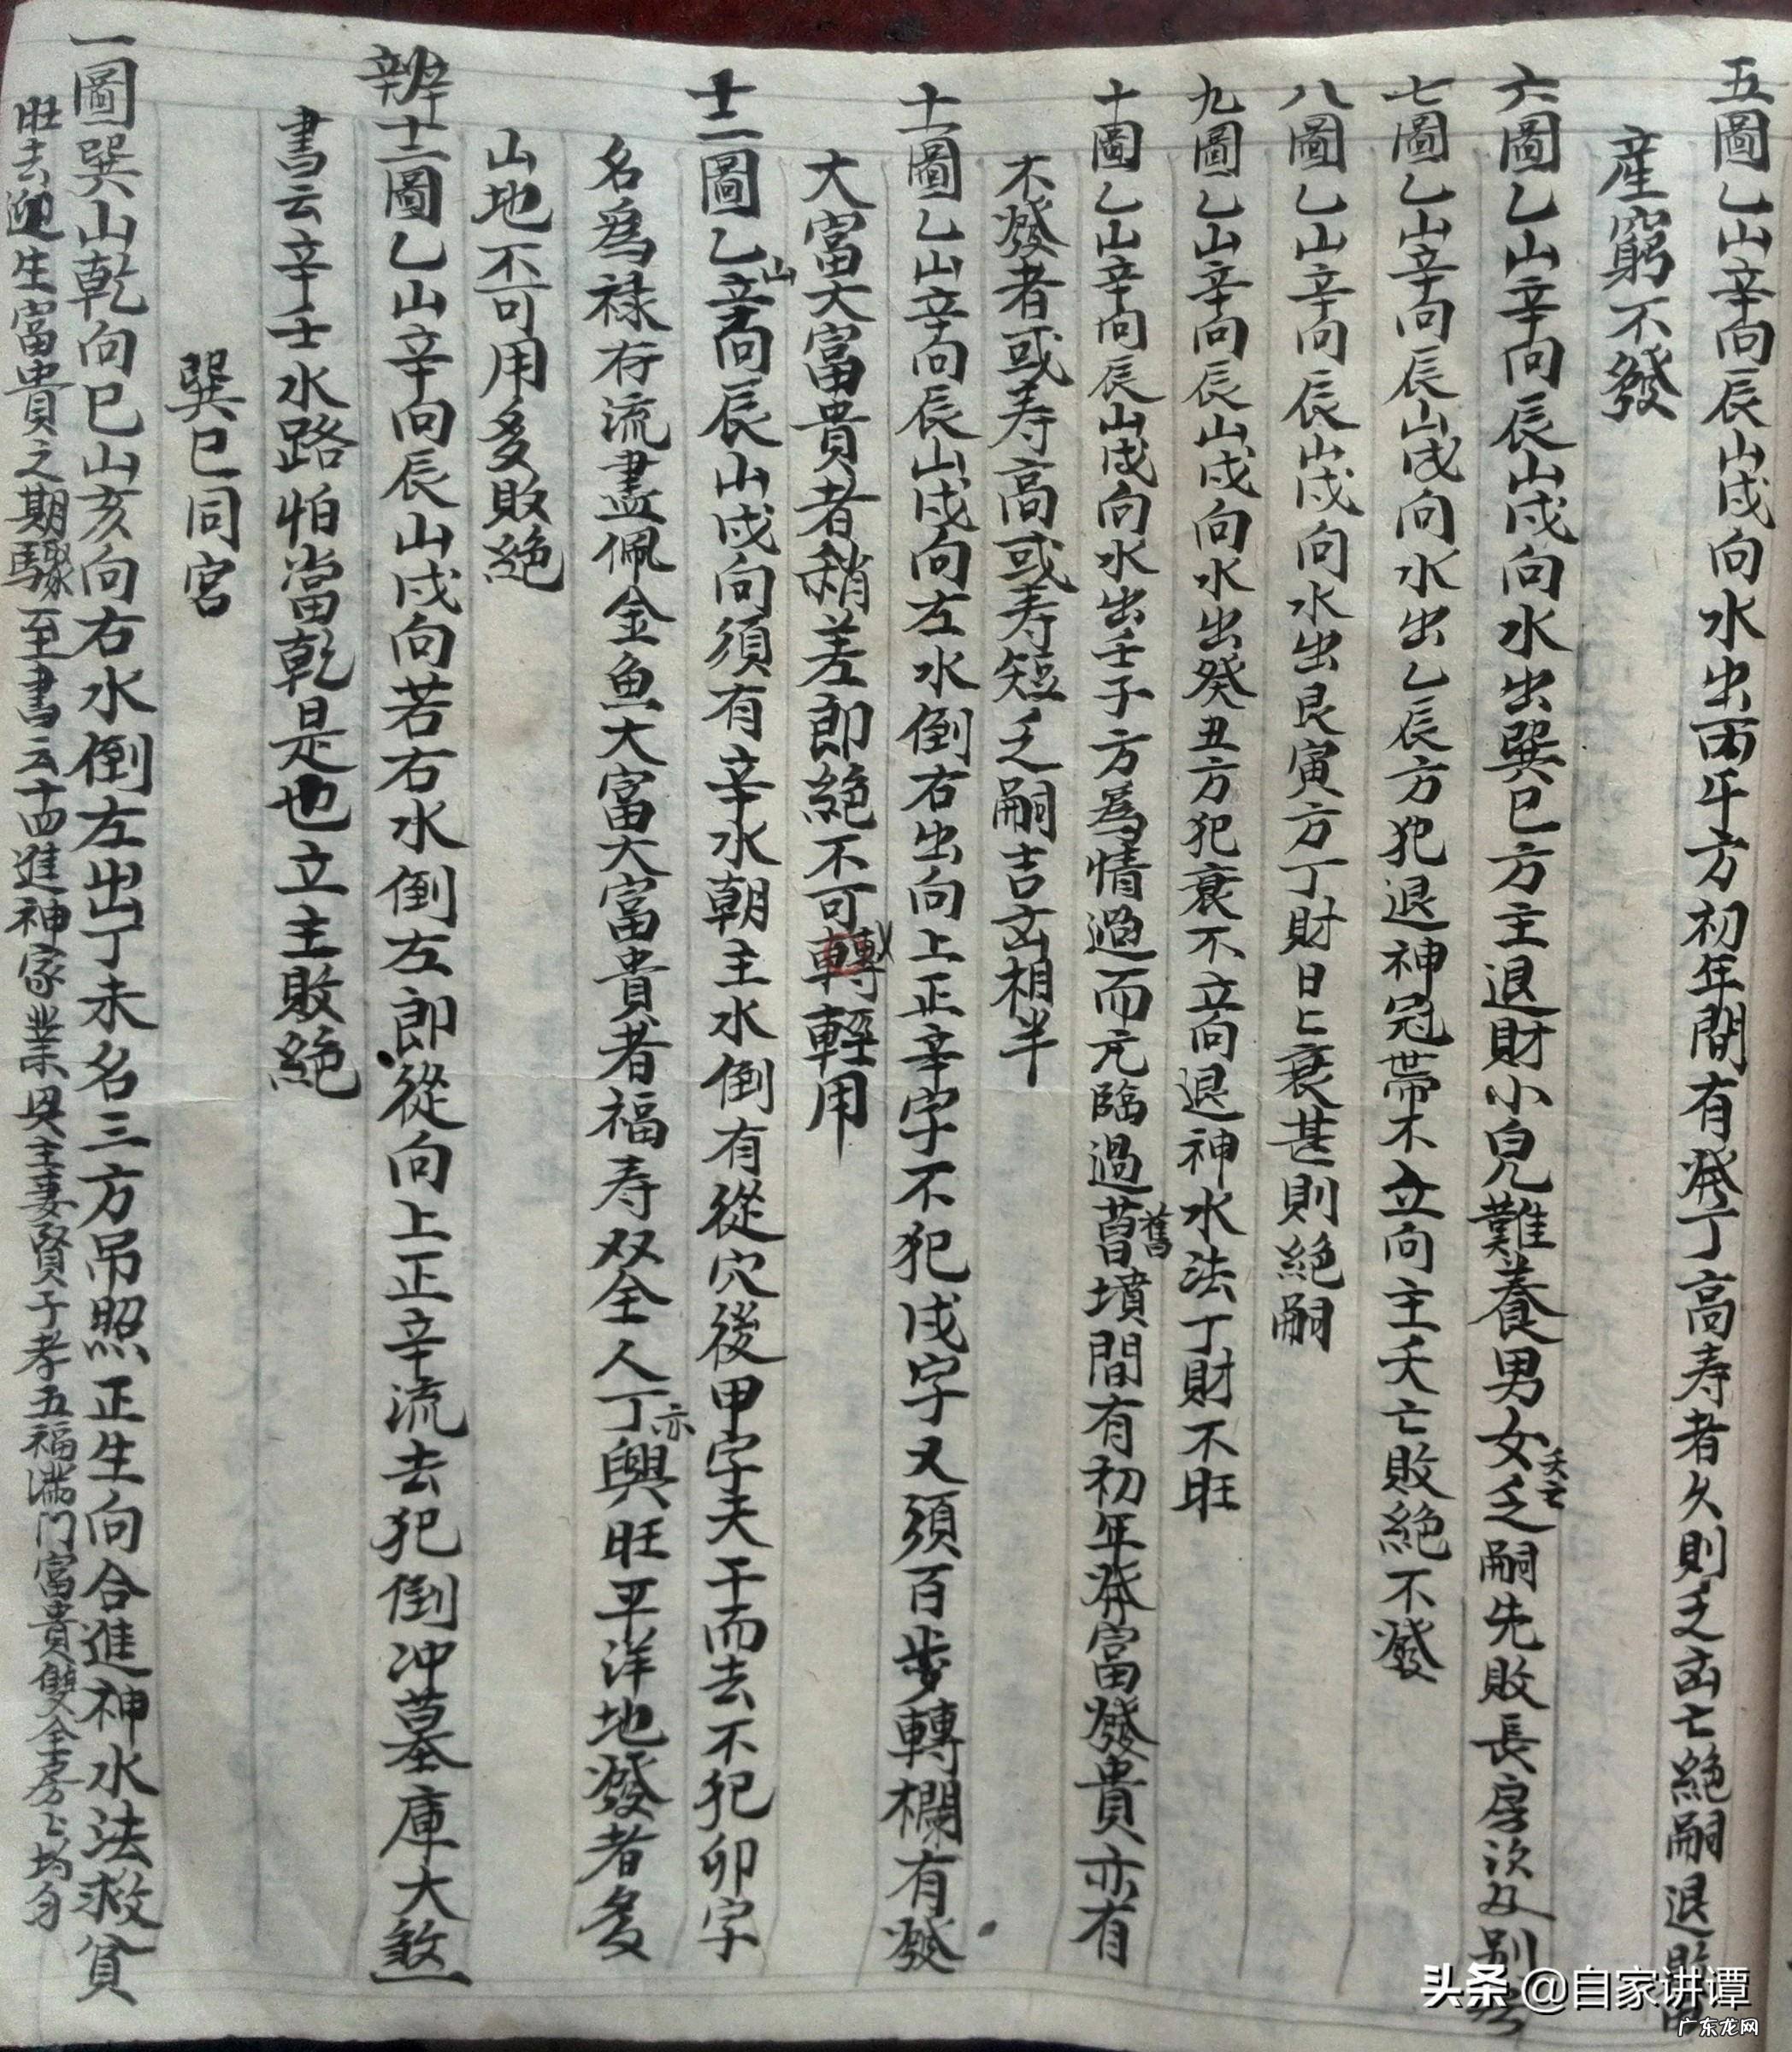 五圖乙山辛向辰山戌向水出丙午方初年間有発丁高寿者久則乏凶亡絕嗣退
産窮不發
六圖乙山辛向辰山戌向水出巽巳方主退財小兒難養男女夭亡乏嗣先敗長房次及别
七圖乙山辛向辰山戌向水出乙辰方犯退神冠帶不立向主夭亡敗絕不發
八圖乙山辛向辰山戌向水出艮寅方丁財日〻衰甚則絕嗣
九圖乙山辛向辰山戌向水出癸丑方犯衰不立向退神水法丁財不旺
十圖乙山辛向辰山戌向水出壬子方為情過而亢臨過舊墳間有初年發富發貴亦有
不發者或寿高或寿短乏嗣吉凶相半
十一圖乙山辛向辰山戌向左水倒右出向上正辛字不犯戌字又須百步轉欄有發
大富大富貴者稍差即絕不可轉輕用
十二圖乙山辛向辰山戌向須有辛水朝主水倒有從穴後甲字天干而去不犯卯字
名為禄存流盡佩金魚大富大富貴者福寿双全人丁亦興旺平洋地發者多
山地不可用多敗絕
辨十二圖乙山辛向辰山戌向若右水倒左即從向上正辛流去犯倒冲墓庫大煞
書云辛壬水路怕當乾是也立主敗絕
巽巳同宮
一圖巽山乾向巳山亥向右水倒左出丁未名三方吊照正生向合進神水法救貧
旺去迎生富貴之期驟至書云十四進神家業興主妻賢子孝五福滿門富貴雙全房〻均匀
头条 @自家讲谭
广东龙网